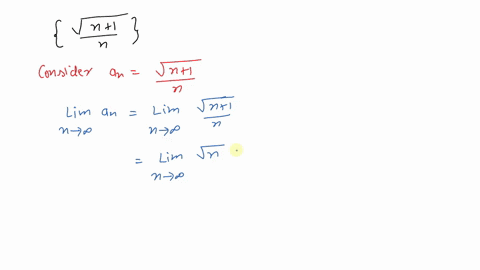 { √(n+1) / n }
Consider aₙ = √(n+1) / n
Lim n→∞ aₙ = Lim n→∞ √(n+1) / n
= Lim n→∞ √n